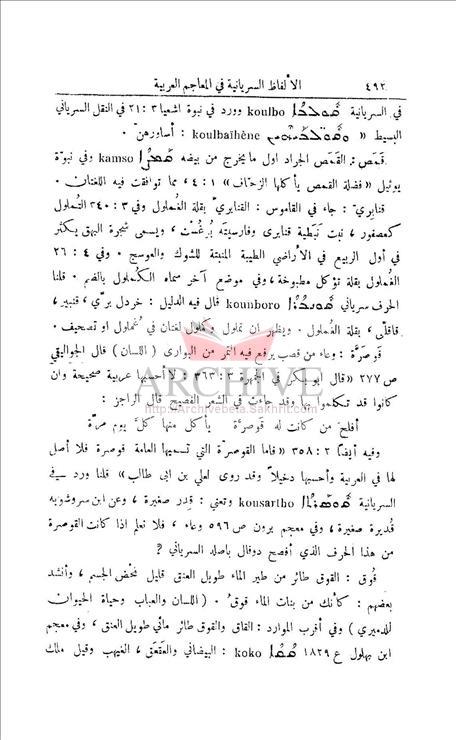 ٤٩٢ الألفاظ السريانية في المعاجم العربية
في السريانية ܩܘܠܒܐ koulbo وورد في نبوة اشعيا ٣ : ٢١ في النقل السرياني
البسيط « ܘܩܘܠܒܝܗܝܢ koulbaïhène : أساورهن ·
قمَص : القمَص الجراد اول ما يخرج من بيضه ܩܡܨܐ kamso وفي نبوّة
يوئيل « فضلة القمص يأكلها الزحّاف » ١ : ٤ ، مما توافقت فيه اللغتان ·
قنابريّ : جاء في القاموس : القنابريّ بقلة الغُملول وفي ٣ : ٢٤٠ الثُملول
كعصفور ، نبت نَبَطية قنابرى وفارسيته بُرغَسْت ، ويسمى شجرة البهق يكثر
في أول الربيع في الأراضي الطيبة المنبتة للشوك والعوسج · وفي ٤ : ٢٦
الغُملول بقلة تؤكل مطبوخة ، وفي موضع آخر سماه الكُملول بالضم · قلنا
الحرف سرياني ܩܘܢܒܪܐ kounboro قال فيه الدليل : خردل برّي ، قنبير ،
قاقلّى ، بقلة الغُملول · ويظهر ان تملول وكملول لغتان في غُملول او تصحيف ·
قوصرَّة : وعاء من قصب يرفع فيه التمر من البوارى ( اللسان ) قال الجواليقي
ص ٢٧٧ «قال ابو بكر في الجمهرة ٣ : ٣٦٣ : لا أحسبها عربية صحيحة وان
كانوا قد تكلموا بها وقد جاءت في الشعر الفصيح قال الراجز :
أفلح من كانت له قوصرّة يأكل منها كلَّ يوم مرّة
وفيه أيضًا ٢ : ٣٥٨ «فاما القوصرّة التي تسميها العامة قوصرة فلا أصل
لها في العربية وأحسبها دخيلًا وقد روى لعلي بن ابى طالب» قلنا ورد في
السريانية ܩܘܣܪܬܐ kousartho وتعني : قِدر صغيرة ، وعن ابن سروشويه
قُديرة صغيرة ، وفي معجم برون ص ٥٩٦ وعاء ، فلا نعلم اذا كانت القوصرة
من هذا الحرف الذي أفصح دوفال باصله السرياني ?
قُوق : القوق طائر من طير الماء طويل العنق قليل نحْض الجسم ، وأنشد
بعضهم : كأنك من بنات الماء فوق · ( اللسان والعباب وحياة الحيوان
للدميري ) وفي أقرب الموارد : القاق والقوق طائر مائي طويل العنق ، وفي معجم
ابن بهلول ع ١٨٢٩ ܩܩܐ koko : البيضاني والعَقعَق ، الغيهب وقيل ملك
ARCHIVE
http://Archivebeta.Sakhrit.com